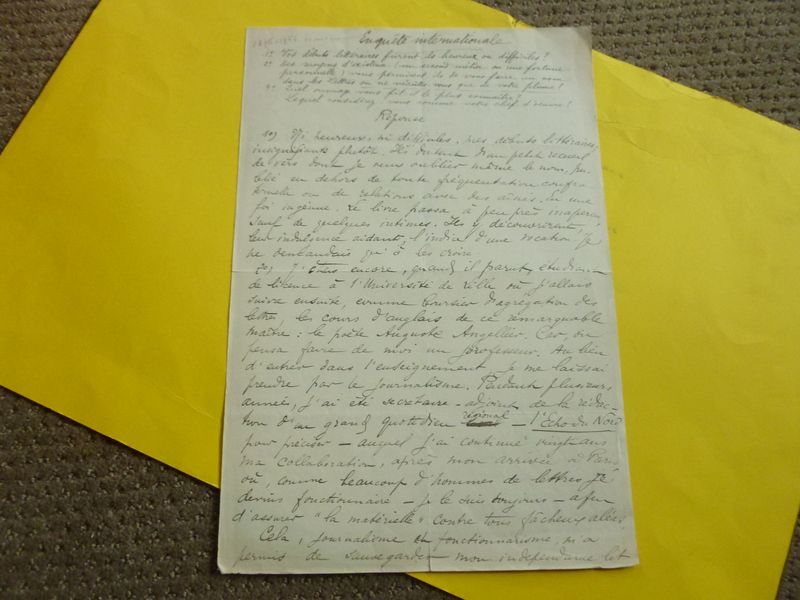 Enquête internationale
1º Vos débuts littéraires furent-ils heureux ou difficiles?
2º Vos moyens d'existence (un second métier ou une fortune
personnelle) vous permirent-ils de vous faire un nom
dans les Lettres ou ne vécûtes-vous que de votre plume?
3º Quel ouvrage vous fit le plus connaître?
Lequel considérez-vous comme votre chef d'œuvre?
Réponse
1º) Ni heureux, ni difficiles, mes débuts littéraires,
insignifiants plutôt. Ils datent d'un petit recueil
de vers dont je veux oublier même le nom, pu-
blié en dehors de toute fréquentation confra-
ternelle ou de relations avec des aînés. En une
foi ingénue. Le livre passa à peu près inaperçu
sauf de quelques intimes. Ils y découvrirent,
leur indulgence aidant, l'indice d'une vocation. Je
ne demandais qu'à les croire
2º) J'étais encore, quand il parut, étudiant
de licence à l'Université de Lille où j'allais
suivre ensuite, comme boursier d'agrégation des
lettres, les cours d'anglais de ce remarquable
maître: le poète Auguste Angellier. Car, on
pensa faire de moi un professeur. Au lieu
d'entrer dans l'enseignement je me laissai
prendre par le journalisme. Pendant plusieurs
années, j'ai été secrétaire-adjoint de la rédac-
tion d'un grand quotidien régional - l'Echo du Nord
pour préciser - auquel j'ai continué vingt ans
ma collaboration, après mon arrivée à Paris
où, comme beaucoup d'hommes de lettres, je
devins fonctionnaire - je le suis toujours - afin
d'assurer "la matérielle" contre tous fâcheux aléas
Cela, journalisme et fonctionnarisme, m'a
permis de sauvegarder mon indépendance et